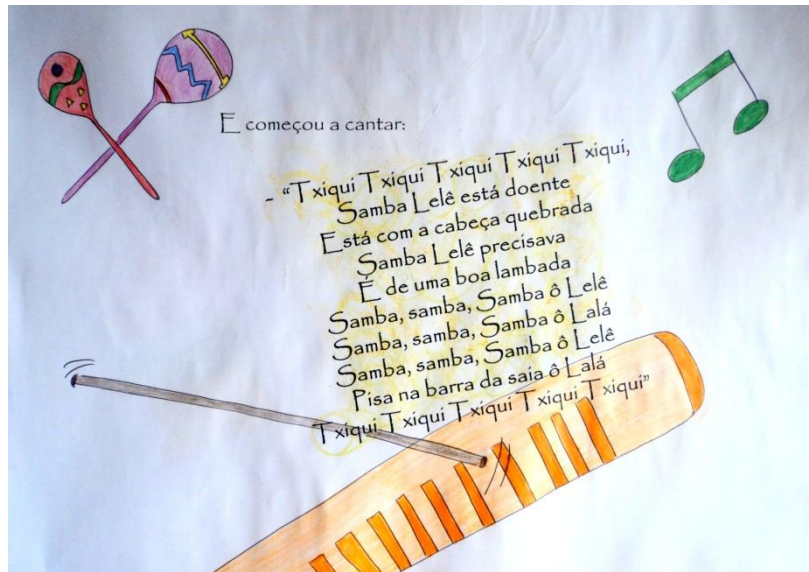 E começou a cantar:
- “Txiqui Txiqui Txiqui Txiqui Txiqui,
Samba Lelê está doente
Está com a cabeça quebrada
Samba Lelê precisava
É de uma boa lambada
Samba, samba, Samba ô Lelê
Samba, samba, Samba ô Lalá
Samba, samba, Samba ô Lelê
Pisa na barra da saia ô Lalá
Txiqui Txiqui Txiqui Txiqui Txiqui”